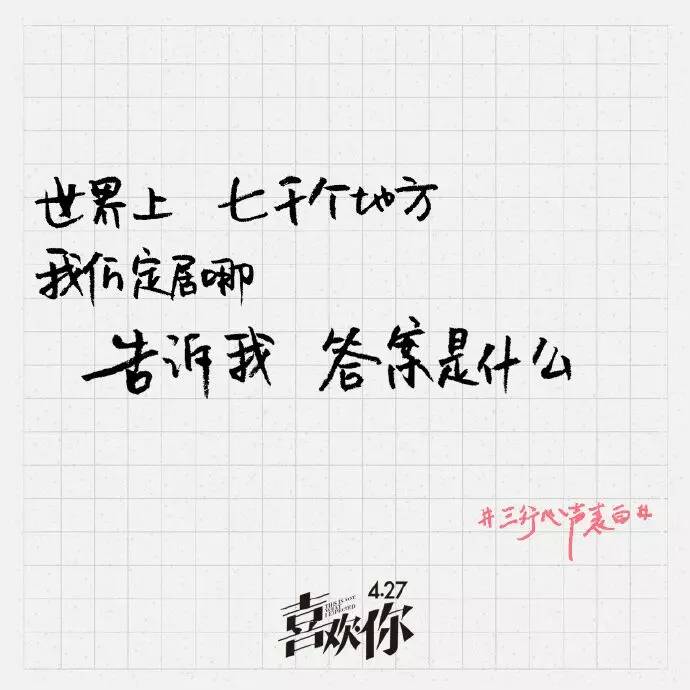 世界上 七千个地方
我们定居哪
告诉我 答案是什么
#三行心声表白#
4.27
THIS IS NOT WHAT I EXPECTED
喜欢·你